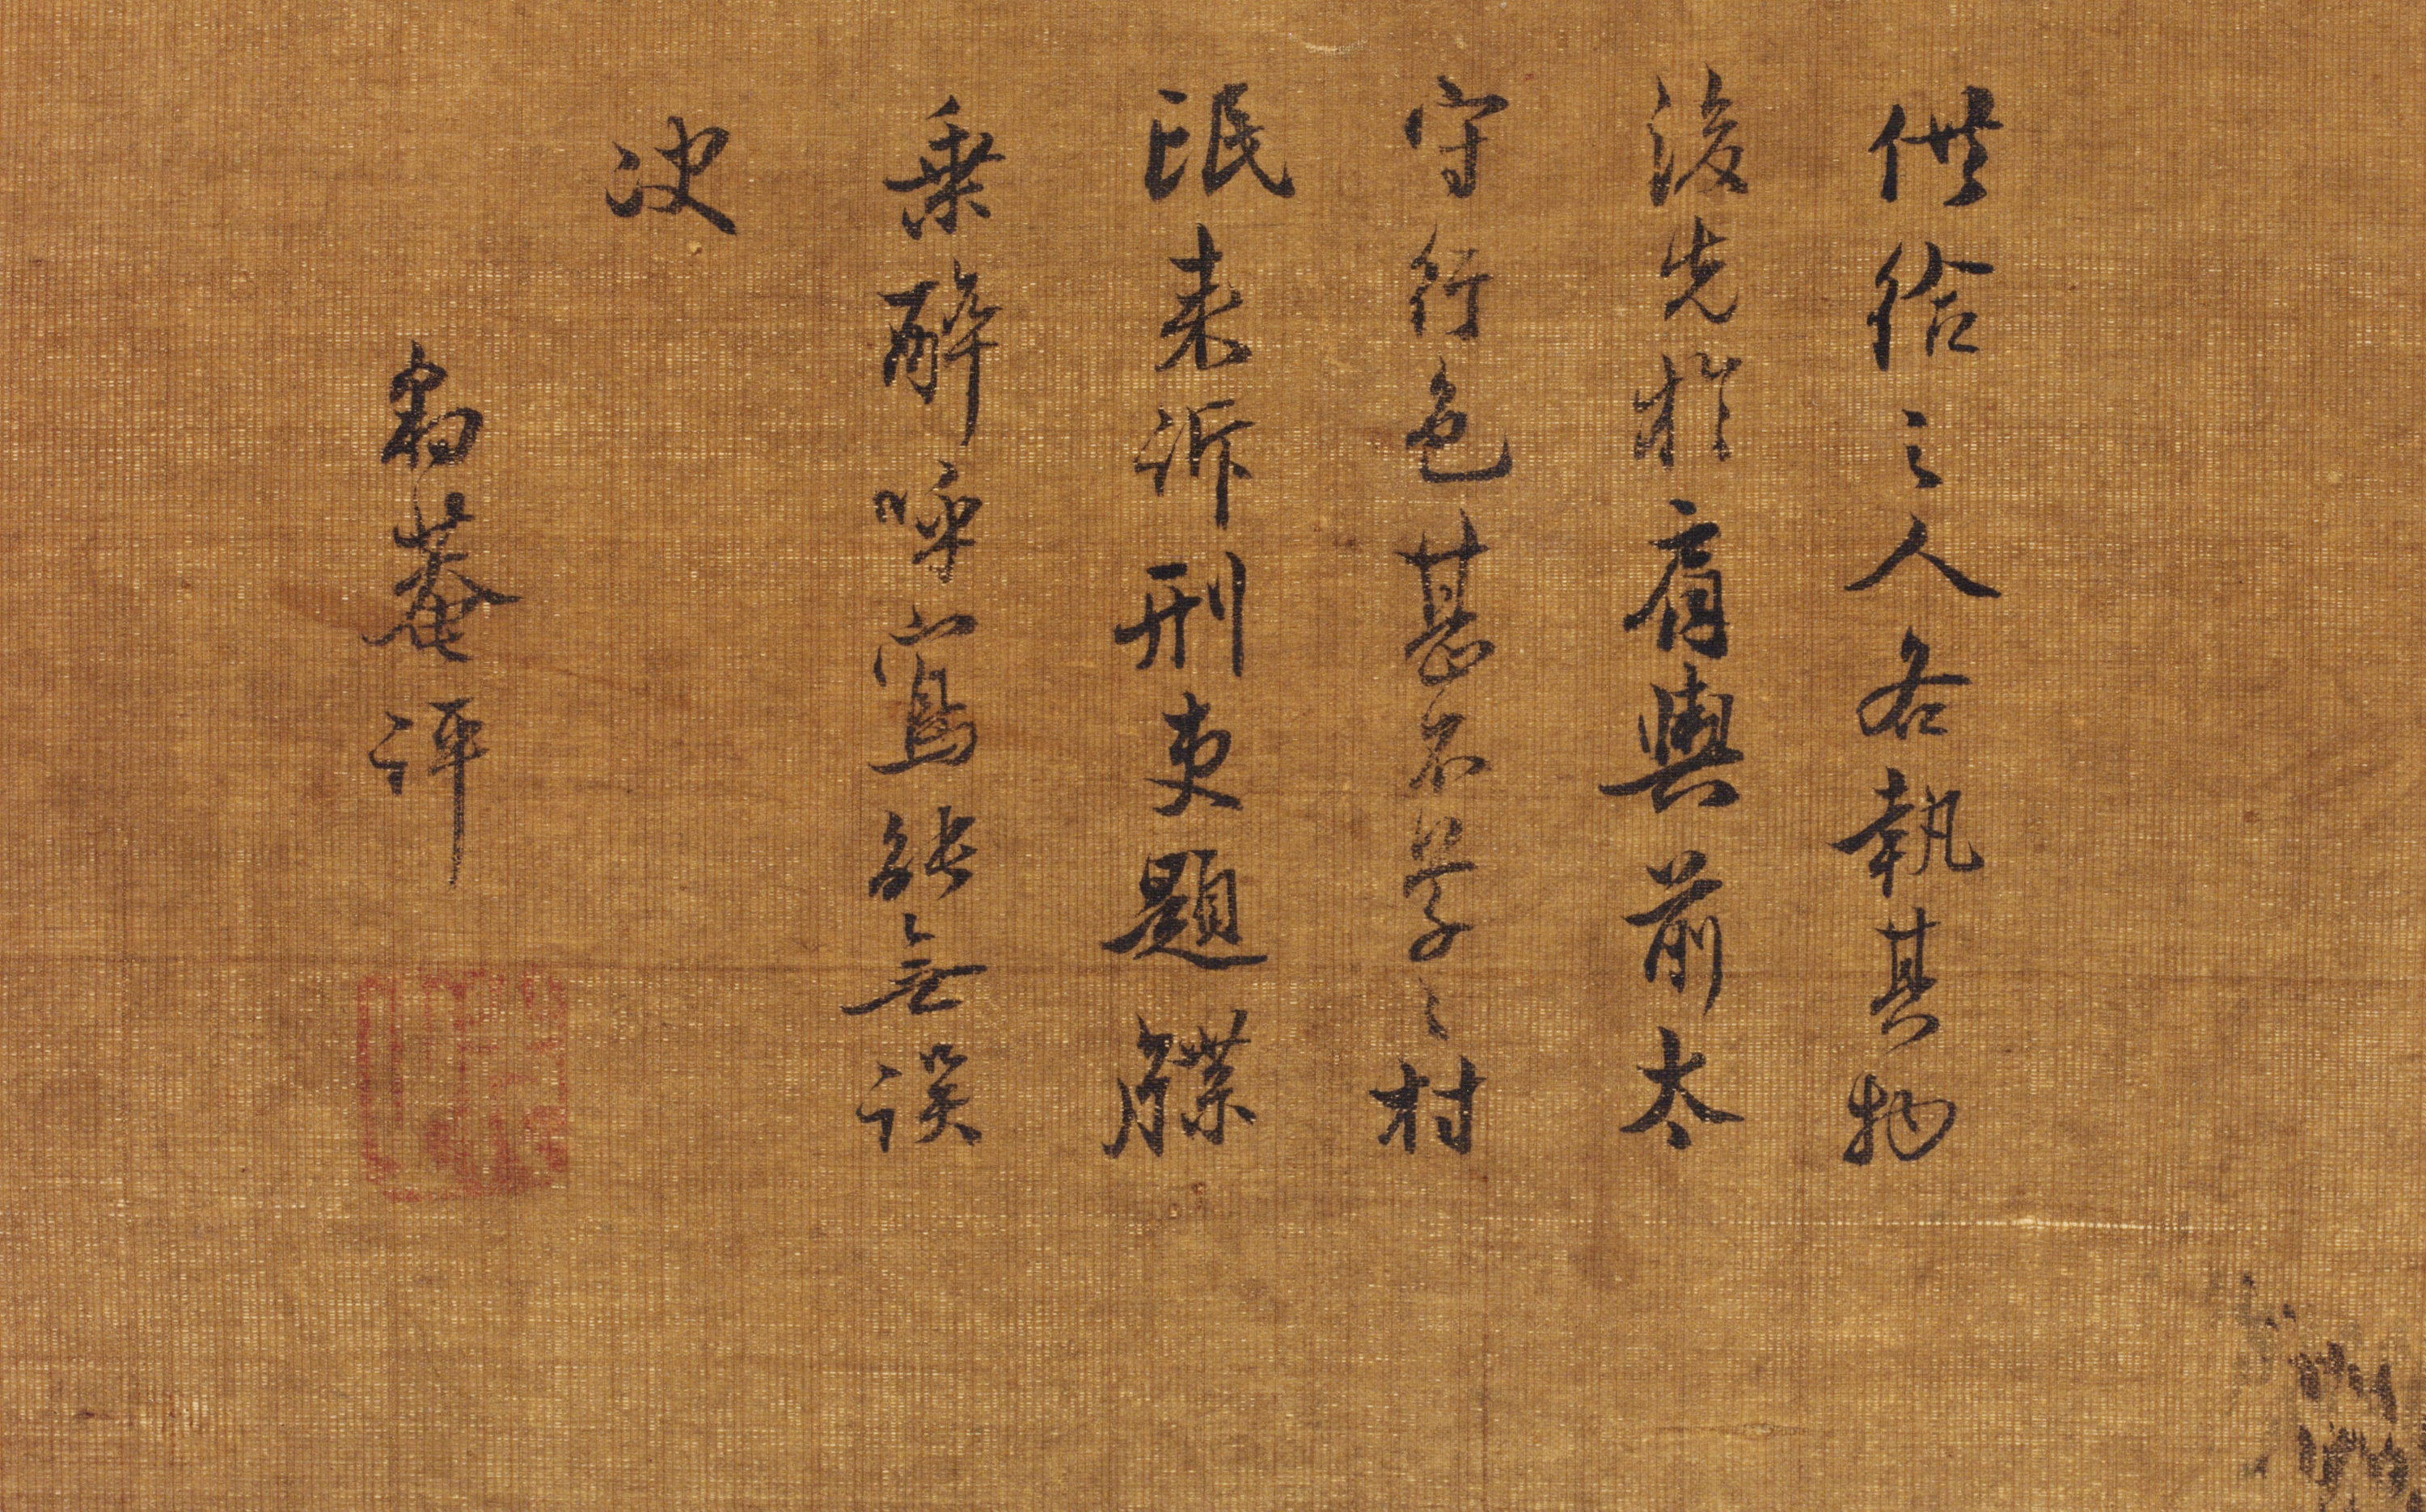 供給之人各執其物
後先於肩輿前太
守行色甚不草〻村
氓來訴刑吏題牒
乘醉呼寫能無誤
決
豹菴評